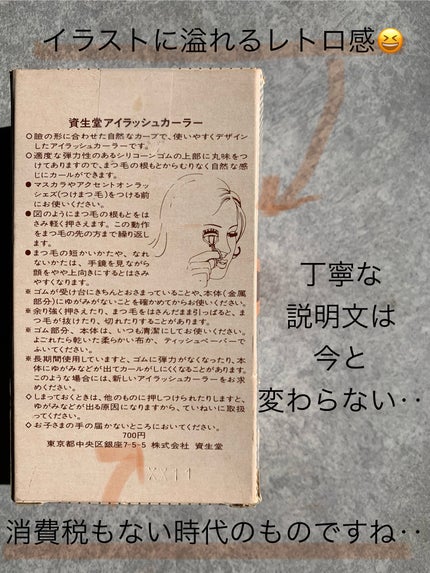 イラストに溢れるレトロ感😆
資生堂アイラッシュカーラー
○瞼の形に合わせた自然なカーブで、使いやすくデザイン
したアイラッシュカーラーです。
○適度な弾力性のあるシリコーンゴムの上部に丸味をつ
けてありますので、まつ毛の根もとからむりなく自然な感
じにカールができます。
●マスカラやアクセントオンラッ
シェズ(つけまつ毛)をつける前
にお使いください。
●図のようにまつ毛の根もとをは
さみ軽く押さえます。この動作
をまつ毛の先の方まで繰り返し
ます。
●まつ毛の短かいかたや、なれ
ないかたは、手鏡を見ながら
顔をやや上向きにするとはさみ
やすくなります。
※ゴムが受け台にきちんとおさまっていることや、本体(金属
部分)にゆがみがないことを確かめてからお使いください。
※余り強く押さえたり、まつ毛をはさんだまま引っぱると、ま
つ毛が抜けたり、切れたりすることがあります。
※ゴム部分、本体は、いつも清潔にしてお使いください。
よごれたら乾いた柔らかい布か、ティッシュペーパーで
ふいてください。
※長期間使用していますと、ゴムに弾力がなくなったり、本
体にゆがみなどが出てカールがしにくくなることがあります。
このような場合には、新しいアイラッシュカーラーをお求
めください。
○しまっておくときは、他のものに押しつけられたりしますと、
ゆがみなどが出る原因になりますから、ていねいに取扱
ってください。
○お子さまの手の届かないところにおいてください。
700円
東京都中央区銀座7-5-5 株式会社 資生堂
XX11
丁寧な
説明文は
今と
変わらない‥
消費税もない時代のものですね‥